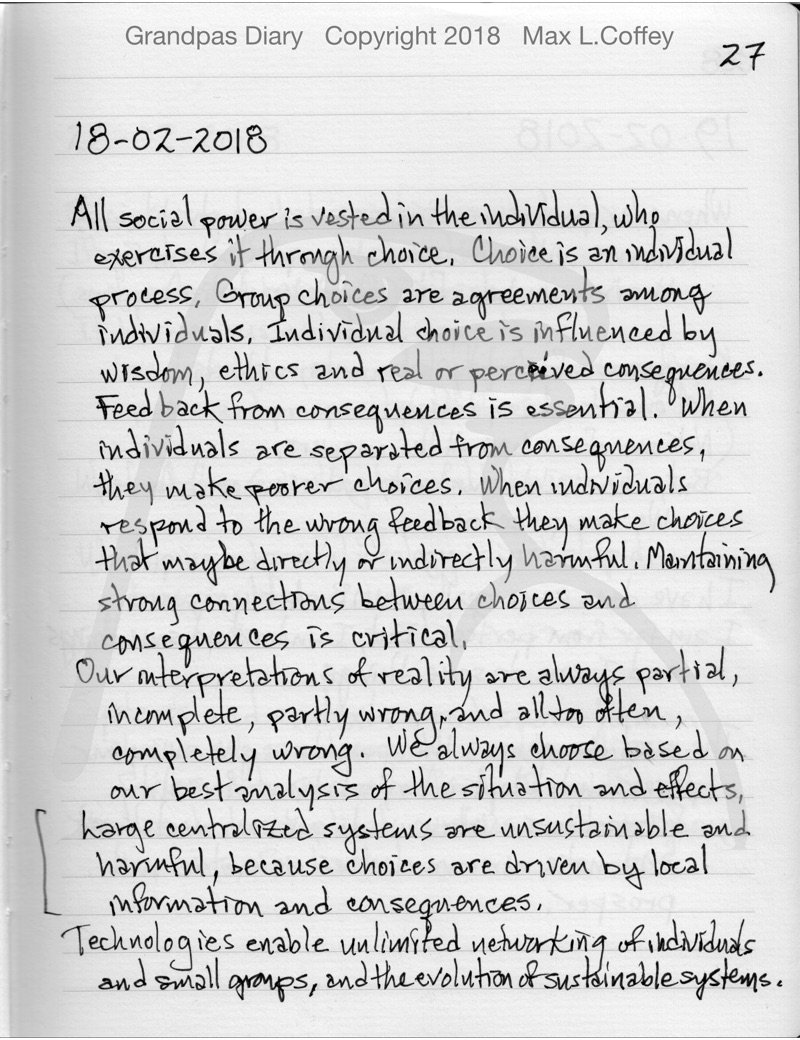 Grandpas Diary Copyright 2018 Max L.Coffey
27
18-02-2018
All social power is vested in the individual, who
exercises it through choice. Choice is an individual
process. Group choices are agreements among
individuals. Individual choice is influenced by
wisdom, ethics and real or perceived consequences.
Feedback from consequences is essential. When
individuals are separated from consequences,
they make poorer choices. When individuals
respond to the wrong feedback they make choices
that maybe directly or indirectly harmful. Maintaining
strong connections between choices and
consequences is critical.
Our interpretations of reality are always partial,
incomplete, partly wrong, and all too often,
completely wrong. We always choose based on
our best analysis of the situation and effects.
Large centralized systems are unsustainable and
harmful, because choices are driven by local
information and consequences.
Technologies enable unlimited networking of individuals
and small groups, and the evolution of sustainable systems.